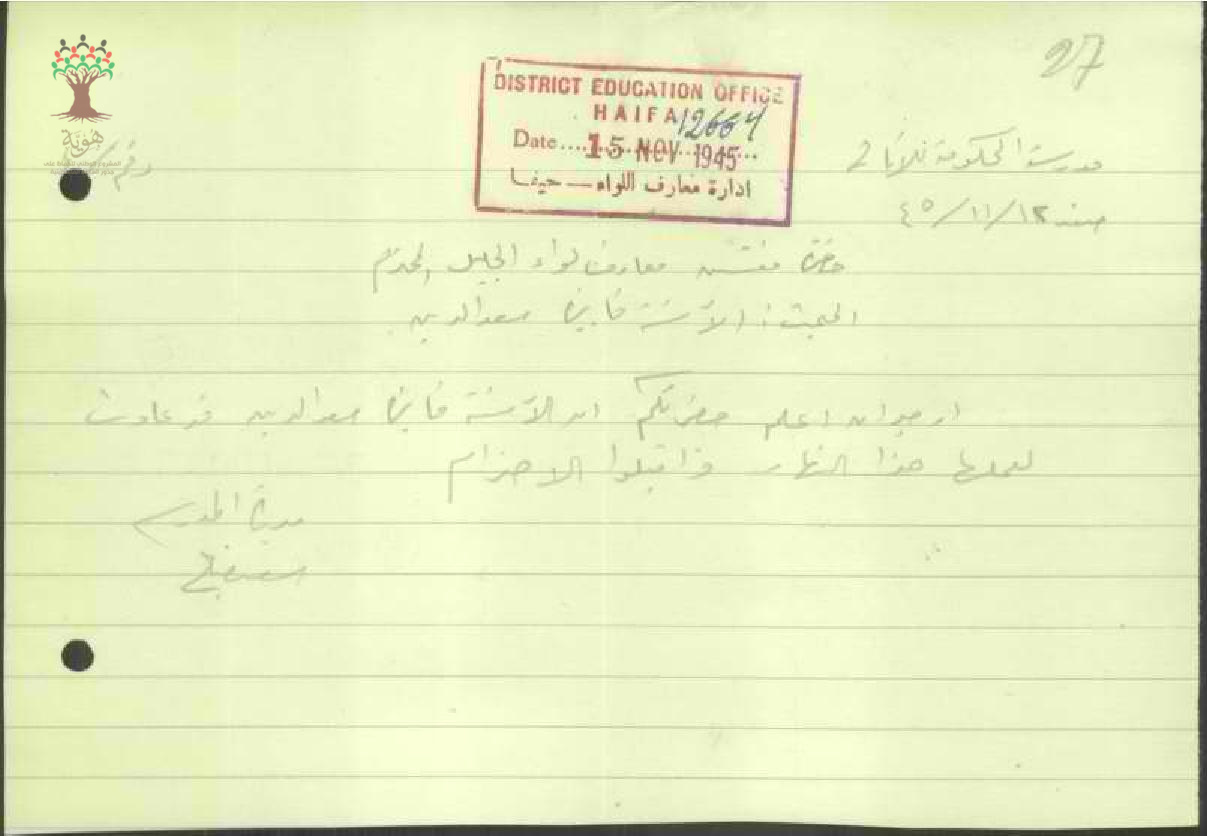 27
DISTRICT EDUCATION OFFICE
HAIFA
12664
Date .... 15 NOV 1945 ...
ادارة معارف اللواء — حيفا
هوية
مدرسة الحكومة للاناث
صفد ١٢/١١/٤٥
حضرة مفتش معارف لواء الجليل المحترم
المبحث: الآنسة فايزة سعد الدين
ارجو ان اعلم حضرتكم ان الآنسة فايزة سعد الدين قد عادت
لعملها هذا النهار واقبلوا الاحترام
مديرة المدرسة